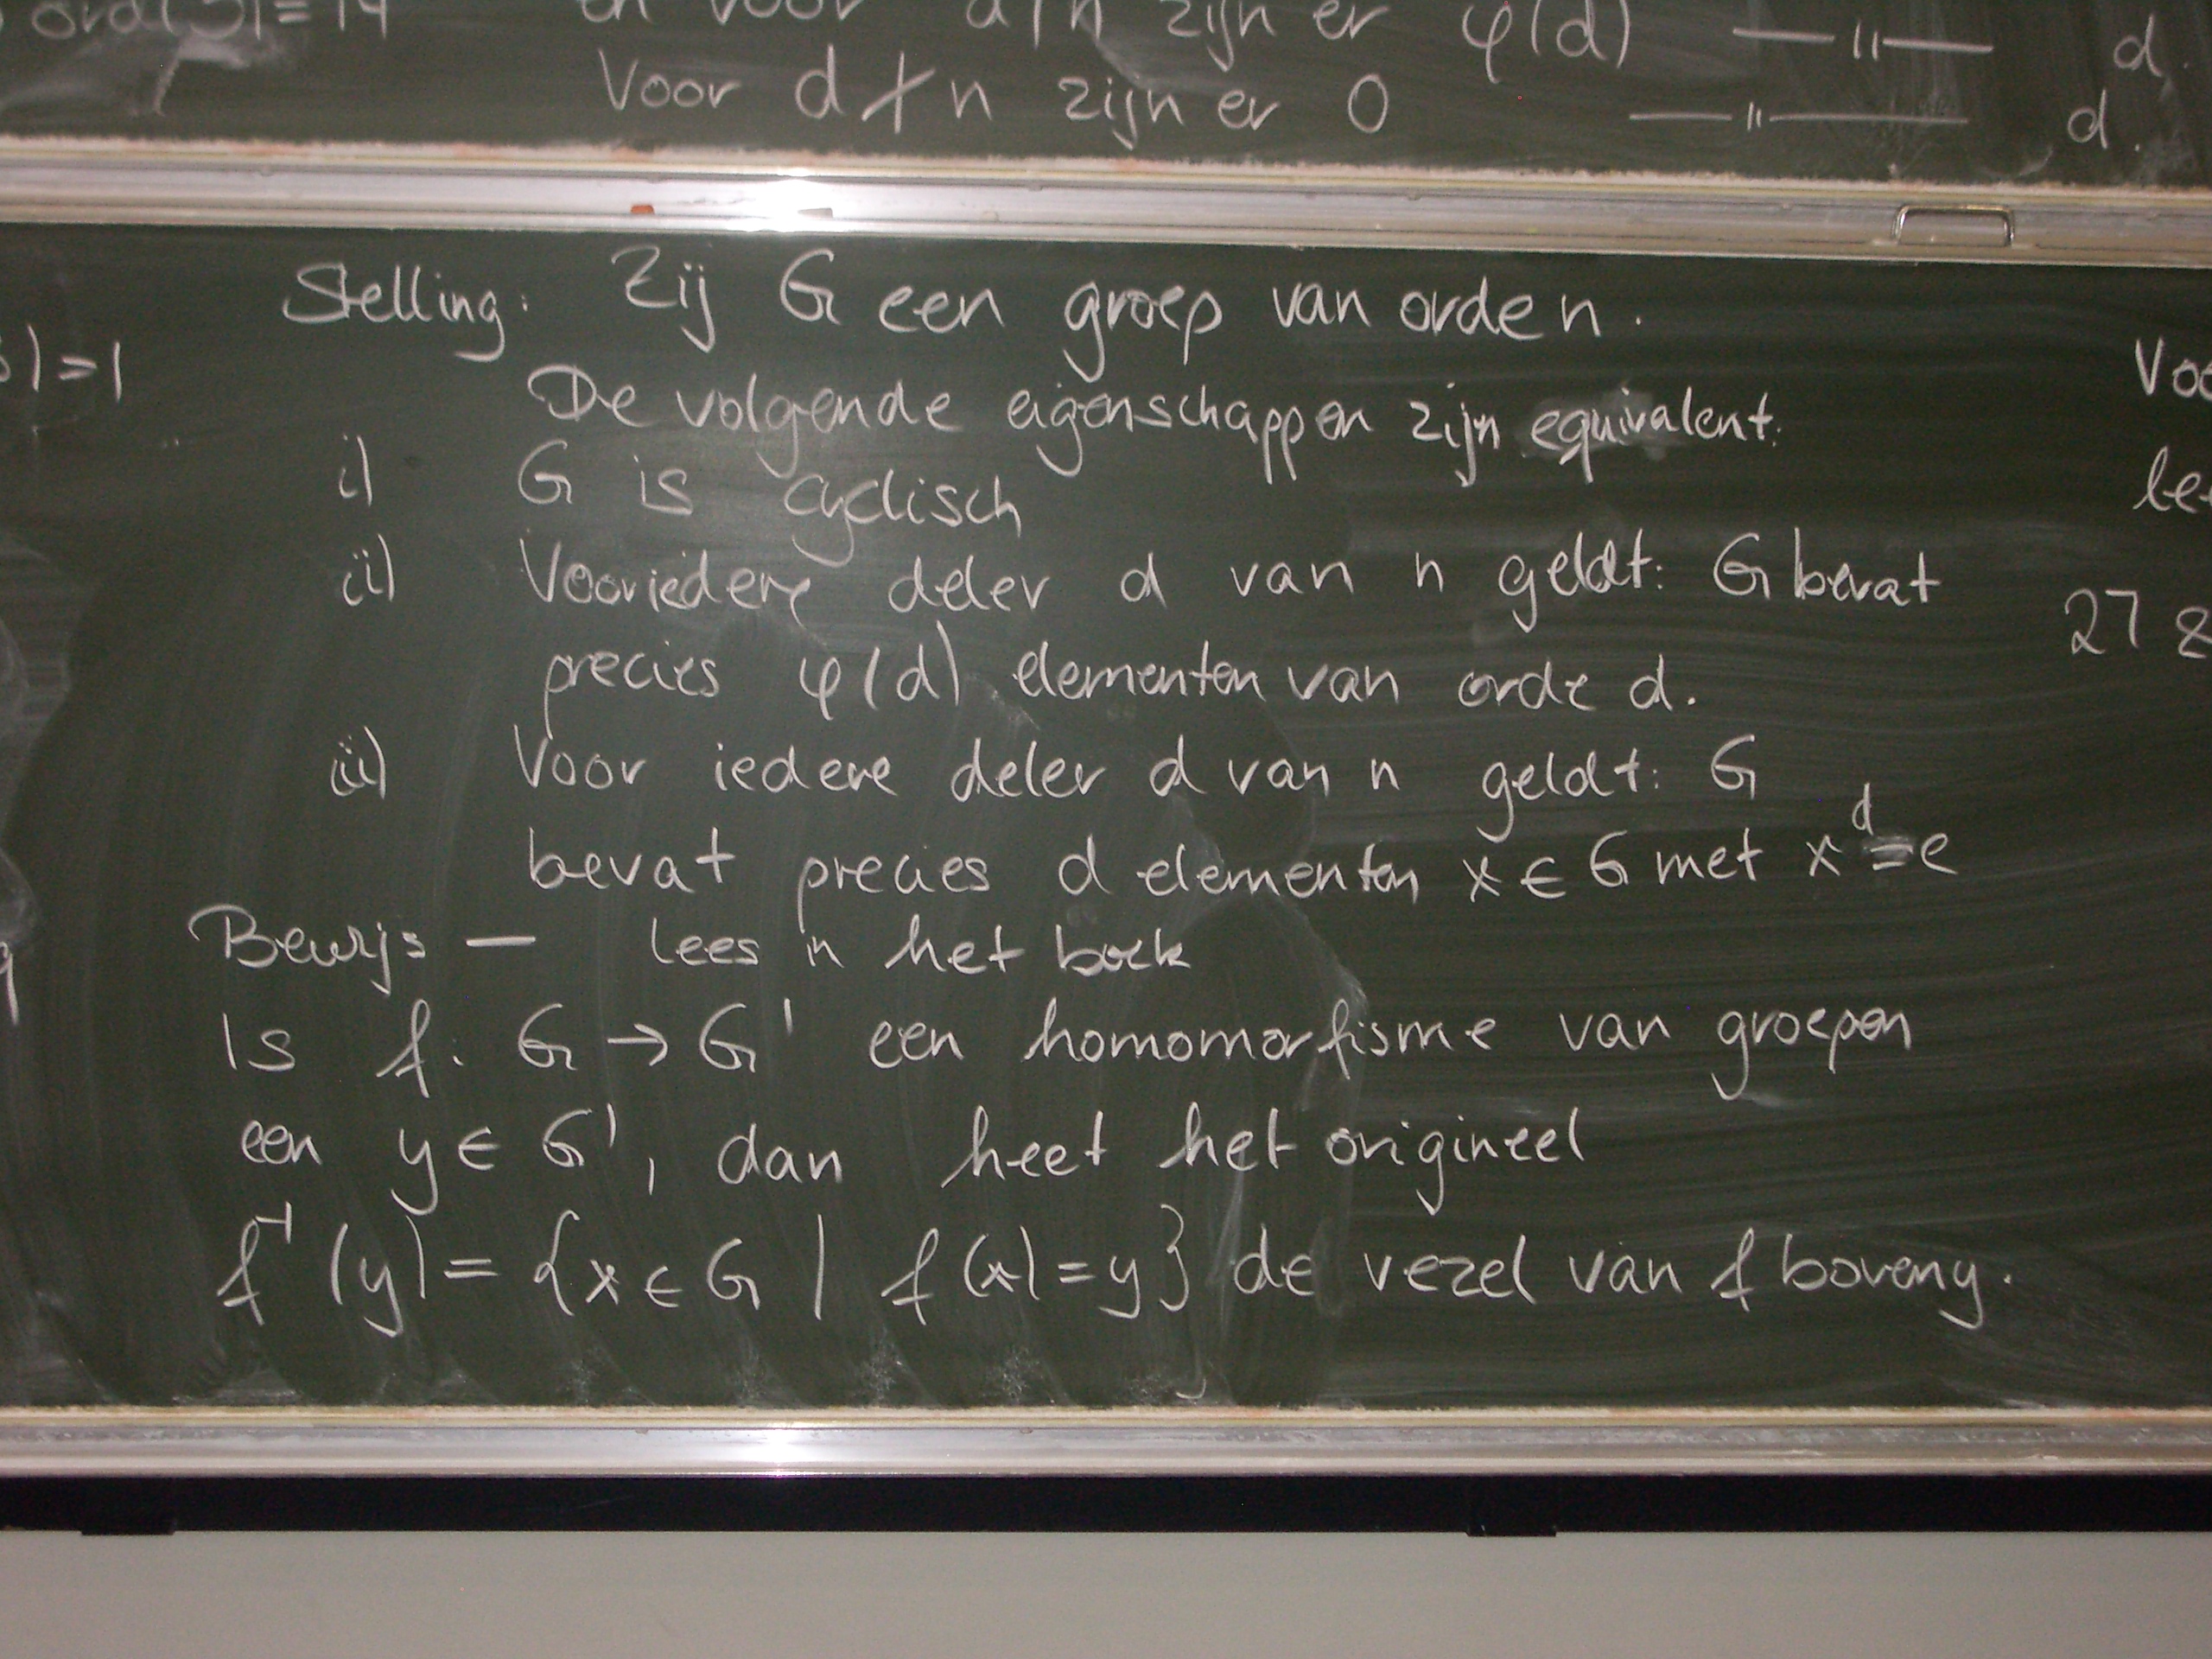 ord(3)=14 en voor d∤n zijn er φ(d) —"— d.
Voor d∤n zijn er 0 —"— d.
)=1
Stelling: Zij G een groep van orde n.
De volgende eigenschappen zijn equivalent:
i) G is cyclisch
ii) Voor iedere deler d van n geldt: G bevat
precies φ(d) elementen van orde d.
iii) Voor iedere deler d van n geldt: G
bevat precies d elementen x ∈ G met x^d = e
Bewijs — lees in het boek
Is f: G → G' een homomorfisme van groepen
een y ∈ G', dan heet het origineel
f^-1(y) = {x ∈ G | f(x) = y} de vezel van f boven y.
Voo
le
27